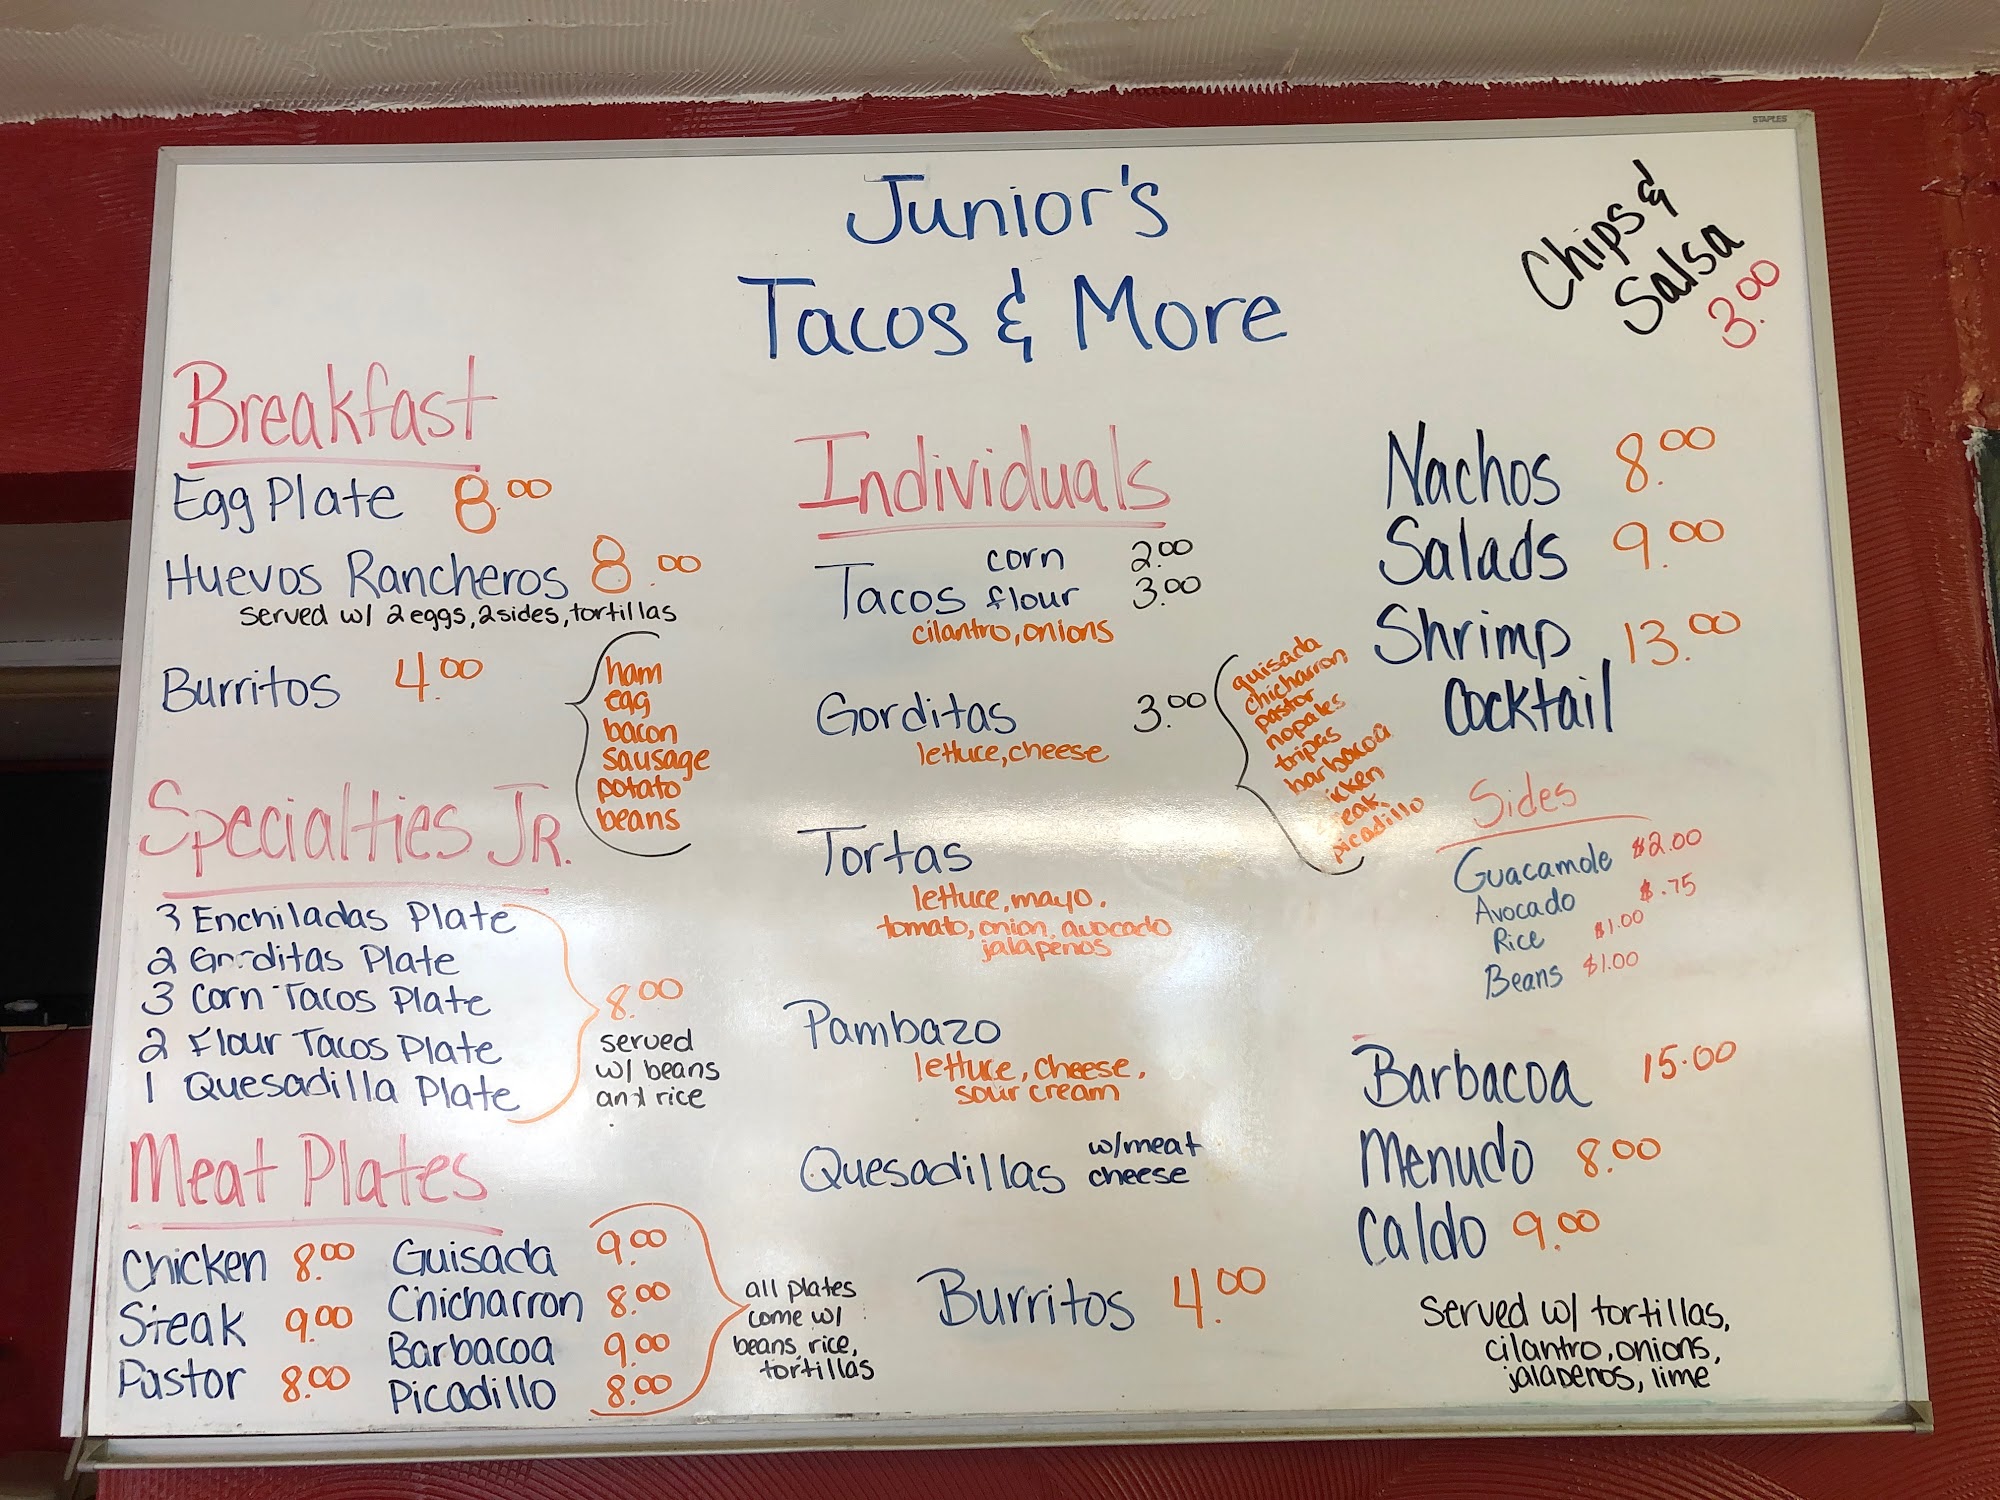 STAPLES
Junior's
Tacos & More
Chips &
Salsa
3.00
Breakfast
Egg Plate 8.00
Huevos Rancheros 8.00
served w/ 2 eggs, 2 sides, tortillas
Burritos 4.00
ham
egg
bacon
sausage
potato
beans
Specialties Jr.
3 Enchiladas Plate
2 Gorditas Plate
3 Corn Tacos Plate
2 Flour Tacos Plate
1 Quesadilla Plate
8.00
served
w/ beans
and rice
Meat Plates
Chicken 8.00
Steak 9.00
Pastor 8.00
Guisada 9.00
Chicharron 8.00
Barbacoa 9.00
Picadillo 8.00
all plates
come w/
beans, rice,
tortillas
Individuals
corn 2.00
Tacos flour 3.00
cilantro, onions
Gorditas 3.00
lettuce, cheese
guisada
chicharron
pastor
nopales
tripas
barbacoa
icken
eak
picadillo
Tortas
lettuce, mayo.
tomato, onion, avocado
jalapenos
Pambazo
lettuce, cheese,
sour cream
Quesadillas w/meat
cheese
Burritos 4.00
Nachos 8.00
Salads 9.00
Shrimp 13.00
Cocktail
Sides
Guacamole $2.00
Avocado $.75
Rice $1.00
Beans $1.00
Barbacoa 15.00
Menudo 8.00
Caldo 9.00
Served w/ tortillas,
cilantro, onions,
jalapenos, lime